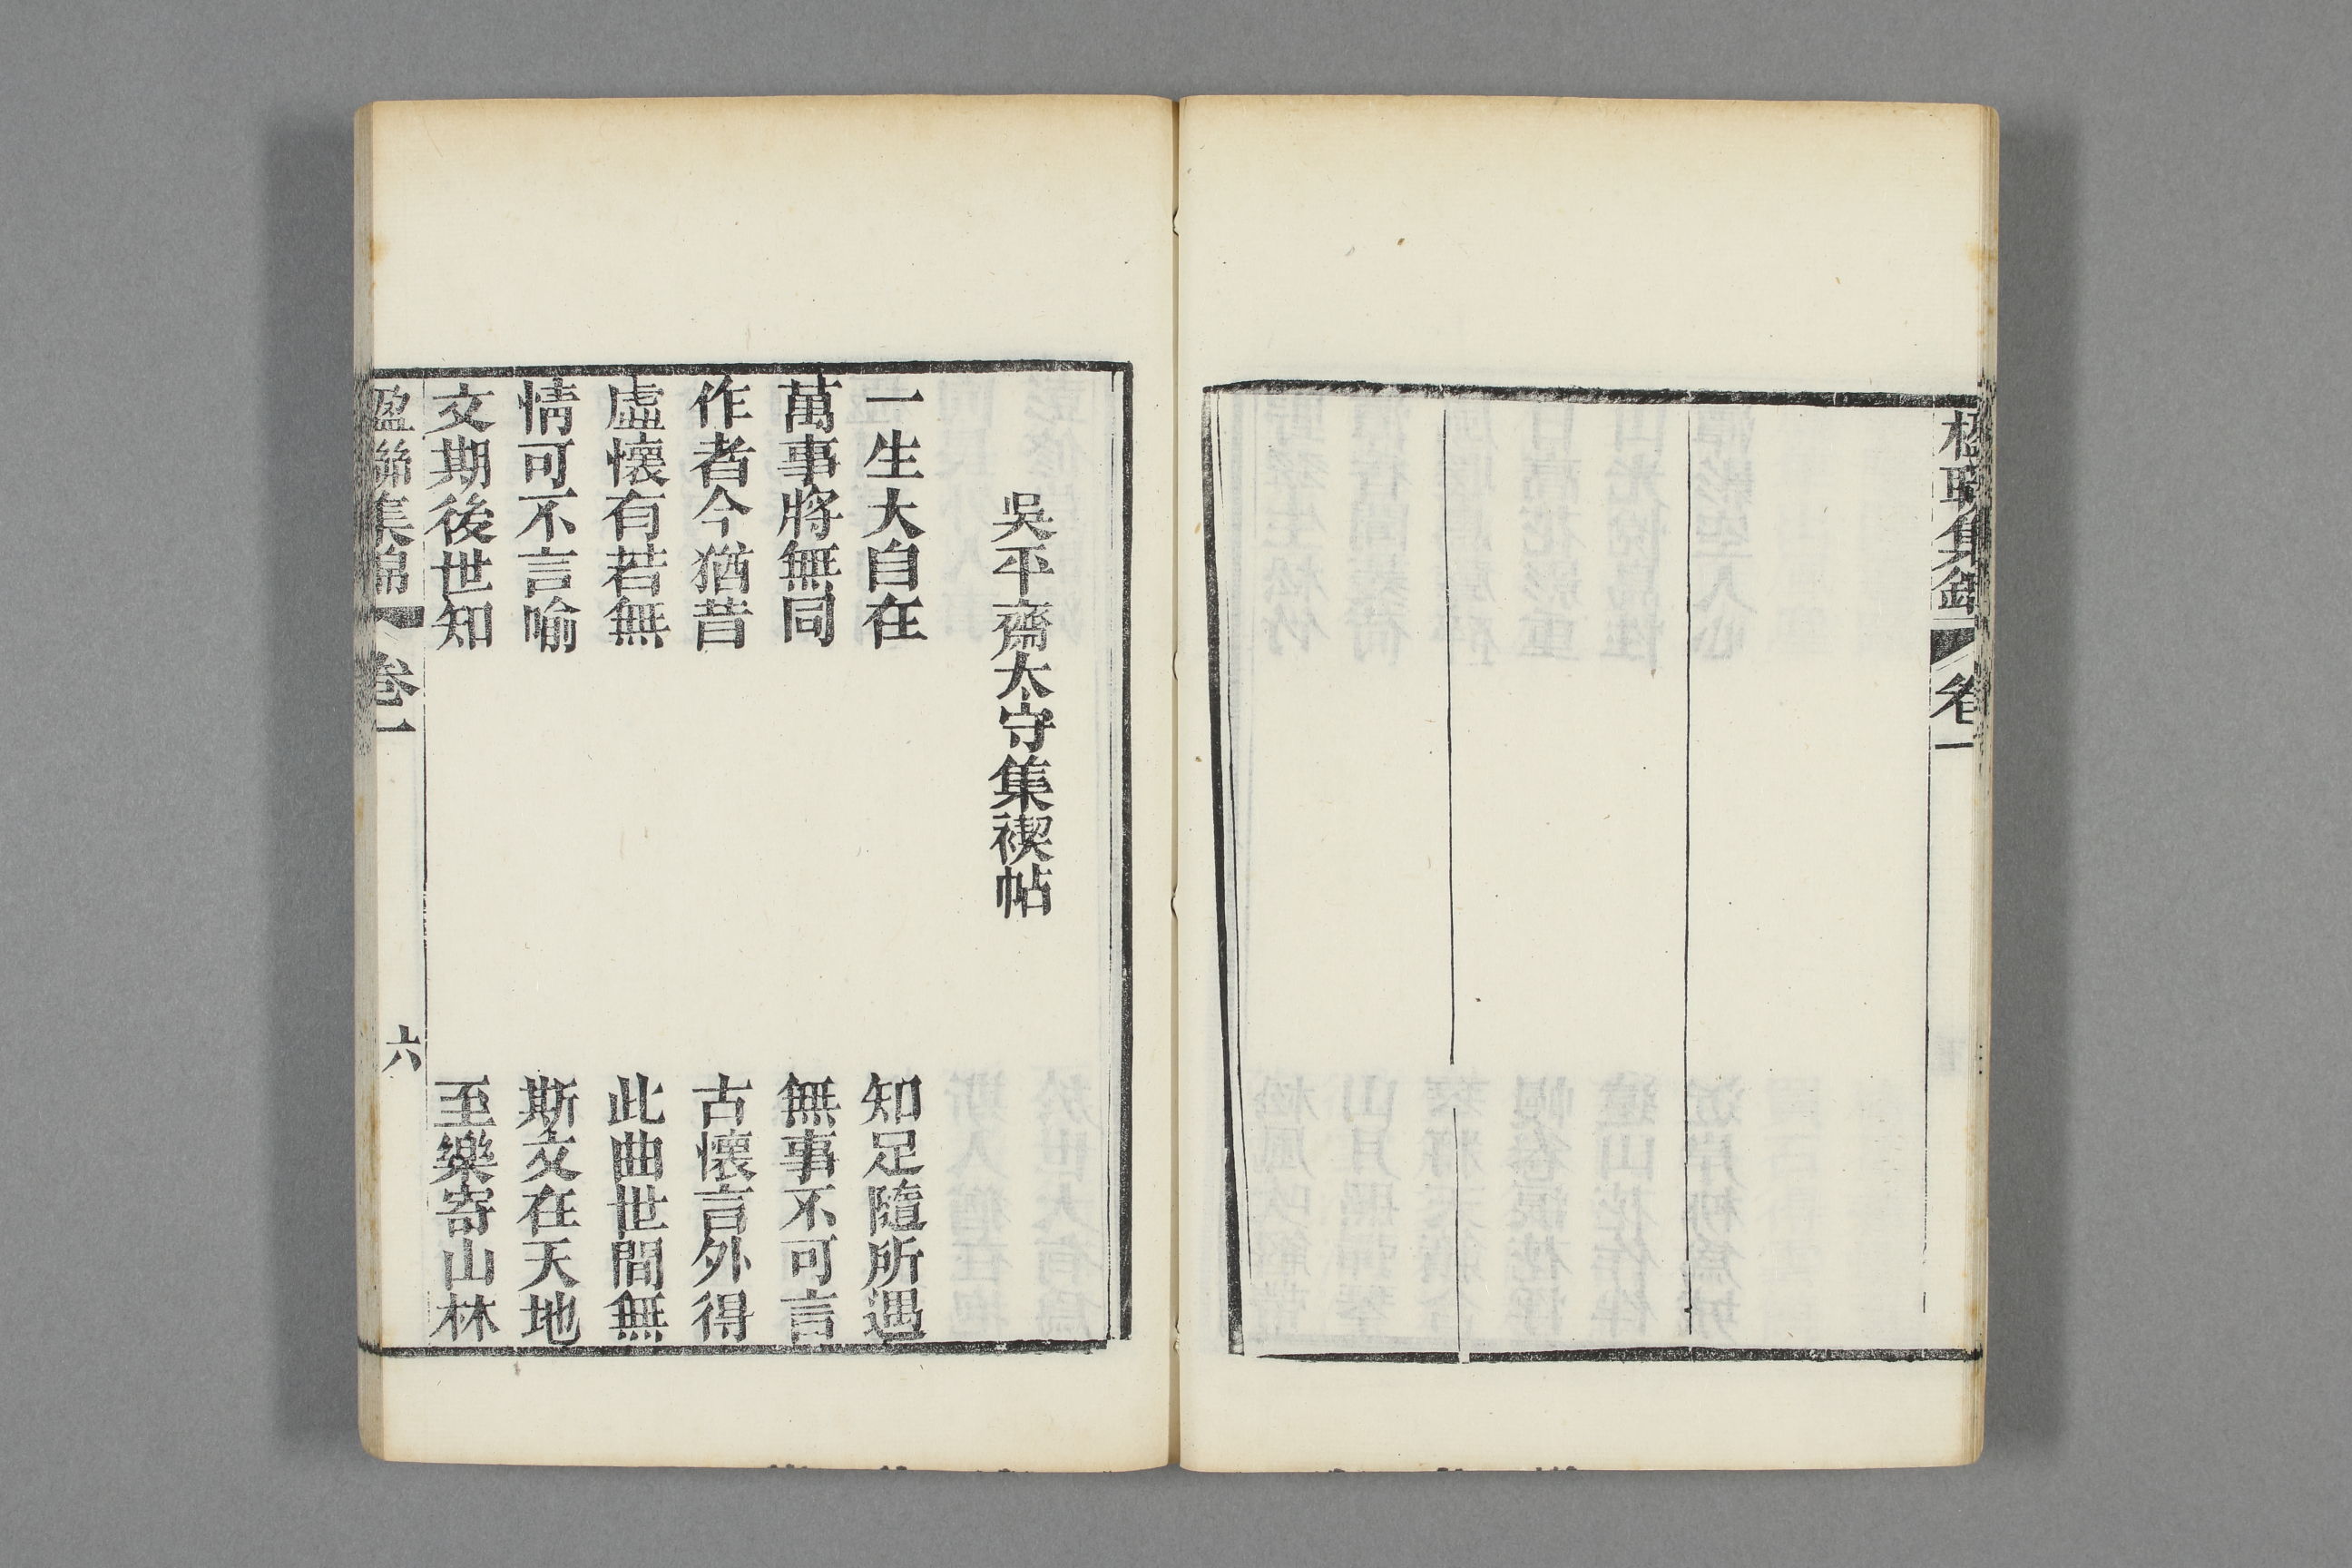 楹聯集錦 卷一
吳平齋太守集禊帖
一生大自在 知足隨所遇
萬事將無同 無事不可言
作者今猶昔 古懷言外得
虛懷有若無 此曲世間無
情可不言喻 斯文在天地
文期後世知 至樂寄山林
楹聯集錦 卷一 六